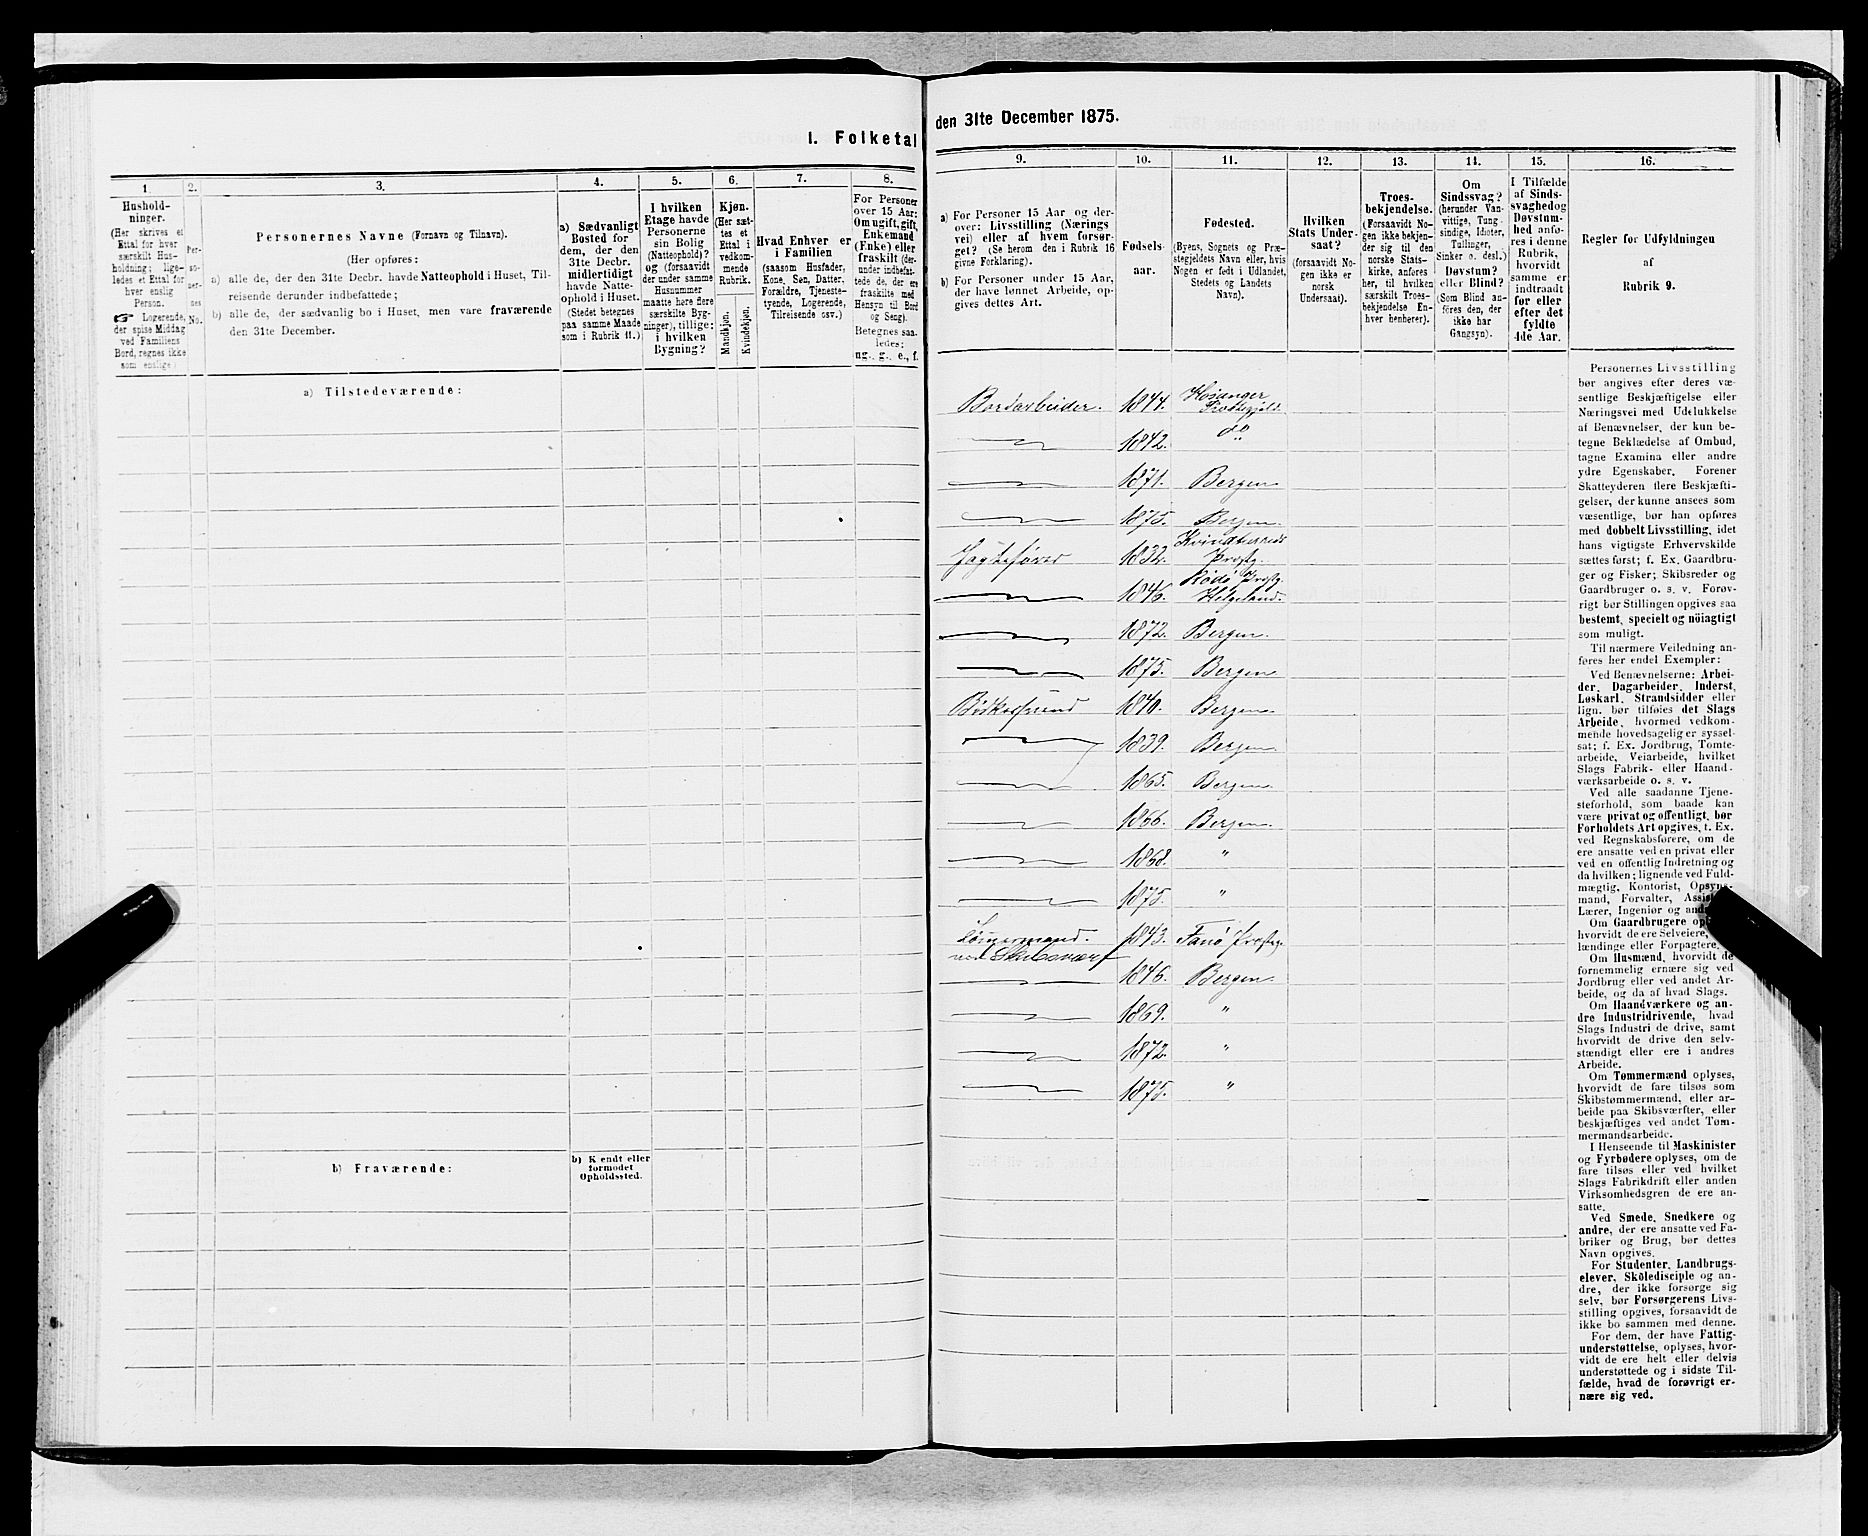 I. Folketal
1.
2.
3.
4.
5.
6.
7.
8.
Hushold-
ninger.
(Her skrives et
Ettal for hver
særskilt Hus-
holdning; lige-
ledes et Ettal for
hver enslig
Person.
☞ Logerende,
der spise Middag
ved Familiens
Bord, regnes ikke
som enslige.)
Per-
so-
ner-
nes
No.
Personernes Navne (Fornavn og Tilnavn).
(Her opføres:
a) alle de, der den 31te Decbr. havde Natteophold i Huset, Til-
reisende derunder indbefattede;
b) alle de, der sædvanlig bo i Huset, men vare fraværende
den 31te December.
a) Sædvanligt
Bosted for
dem, der den
31te Decbr.
midlertidigt
havde Natte-
ophold i Huset.
(Stedet betegnes
paa samme Maade
som i Rubrik 11.)
I hvilken
Etage havde
Personerne
sin Bolig
(Natteophold)?
og (forsaavidt
der under samme
Husnummer
maatte høre flere
særskilte Byg-
ninger), tillige:
i hvilken
Bygning?
Kjøn.
(Her sæt-
tes et
Ettal i
vedkom-
mende
Rubrik.
Mandkjøn.
Kvindekjøn.
Hvad Enhver er
i Familien
(saasom Husfader,
Kone, Søn, Datter,
Forældre, Tjeneste-
tyende, Logerende,
Tilreisende osv.)
For Personer
over 15 Aar:
Om ugift, gift,
Enkemand
(Enke) eller
fraskilt (der-
under indbefat-
tede de, der ere
fraskilte med
Hensyn til Bord
og Seng).
Betegnes saa-
ledes:
ug., g., e., f.
a) Tilstedeværende:
b) Fraværende:
b) Kjendt eller
formodet
Opholdssted.
den 31te December 1875.
9.
10.
11.
12.
13.
14.
15.
16.
a) For Personer 15 Aar og der-
over: Livsstilling (Nærings
vei) eller af hvem forsør-
get? (Se herom den i Rubrik 16
givne Forklaring).
b) For Personer under 15 Aar,
der have lønnet Arbeide, op-
gives dettes Art.
Fødsels-
aar.
Fødested.
(Byens, Sognets og Præ-
stegjeldets Navn eller, hvis
Nogen er født i Udlandet,
Stedets og Landets
Navn).
Hvilken
Stats Under-
saat?
(forsaavidt No-
gen ikke er
norsk
Undersaat).
Troes-
bekjendelse.
(Forsaavidt No-
gen ikke bekjen-
der sig til den
norske Stats-
kirke, anføres
her, til hvilken
særskilt Troes-
bekjendelse En-
hver henhører).
Om
Sindssvag?
(herunder Van-
vittige, Tung
sindige, Idioter,
Tullinger,
Sinker o. desl.)
Døvstum?
eller Blind?
(Som Blind an-
føres den, der
ikke har
Gangsyn).
I Tilfælde
af Sinds-
svaghed og
Døvstum-
hed anfø-
res i denne
Rubrik,
hvorvidt
samme er
indtraadt
før eller
efter det
fyldte
4de Aar.
Regler for Udfyldningen
af
Rubrik 9.
Bordarbeider. 1844. Hosanger
Præstegjeld.
1842. do
1871. Bergen
1875. Bergen
Jagtefører 1832. Kvindherreds
Præstg.
1846. Rødø Præstg.
Helgeland.
1872. Bergen.
1875. Bergen
Bødkersvend 1840. Bergen
1839. Bergen
1865. Bergen
1866. Bergen
1868. "
1875. "
Tømermand. 1843. Fanø Præstg.
ved Skibsværf
1846. Bergen
1869. "
1872. "
1875. "
Personernes Livsstilling
bør angives efter deres væ-
sentlige Beskjæftigelse eller
Næringsvei med Udelukkelse
af Benævnelser, der kun be-
tegne Beklædelse af Ombud,
tagne Examina eller andre
ydre Egenskaber. Forener
Skatteyderen flere Beskjæfti-
gelser, der kunne ansees som
væsentlige, bør han opføres
med dobbelt Livsstilling, idet
hans vigtigste Erhvervskilde
sættes først; f. Ex. Gaardbru-
ger og Fisker; Skibsreder og
Gaardbruger o. s. v. Forøv-
rigt bør Stillingen opgives saa
bestemt, specielt og nöiagtigt
som muligt.
Til nærmere Veiledning an-
føres her endel Exempler:
Ved Benævnelserne: Arbei-
der, Dagarbeider, Inderst,
Løskarl, Strandsidder eller
lign. bør tilføies det Slags
Arbeide, hvormed vedkom-
mende hovedsagelig er syssel-
sat; f. Ex. Jordbrug, Tomte-
arbeide, Veiarbeide, hvilket
Slags Fabrik- eller Haand-
værksarbeide o. s. v.
Ved alle saadanne Tjene-
steforhold, som baade kan
være privat og offentligt, bør
Forholdets Art opgives, t. Ex.
ved Regnskabsførere, om de
ere ansatte ved en privat eller
ved en offentlig Indretning og
da hvilken; lignende ved Fuld-
mægtig, Kontorist, Opsyns-
mand, Forvalter,
Lærer, Ingeniør og
Om Gaardbrugere
hvorvidt de ere Selveiere,
lændinge eller Forpagtere.
Om Husmænd, hvorvidt de
fornemmelig ernære sig ved
Jordbrug eller ved andet Ar-
beide, og da af hvad Slags.
Om Haandværkere og an-
dre Industridrivende, hvad
Slags Industri de drive, samt
hvorvidt de drive den selv-
stændigt eller ere i andres
Arbeide.
Om Tømmermænd oplyses,
hvorvidt de fare tilsøs som
Skibstømmermænd, eller ar-
beide paa Skibsværfter, eller
beskjæftiges ved andet Tøm-
mermandsarbeide.
I Henseende til Maskinister
og Fyrbødere oplyses, om de
fare tilsøs eller ved hvilket
Slags Fabrikdrift eller anden
Virksomhedsgren de ere an-
satte.
Ved Smede, Snedkere og
andre, der ere ansatte ved Fa-
briker og Brug, bør dettes
Navn opgives.
For Studenter, Landbrugs-
elever, Skôledisciple og an-
dre, der ikke forsørge sig
selv, bør Forsørgerens Livs-
stilling opgives, forsaavidt de
ikke bo sammen med denne.
For dem, der have Fattig-
understøttelse, oplyses, hvor-
vidt de ere helt eller delvis
understøttede og i sidste Til-
fælde, hvad de forøvrigt er-
nære sig ved.